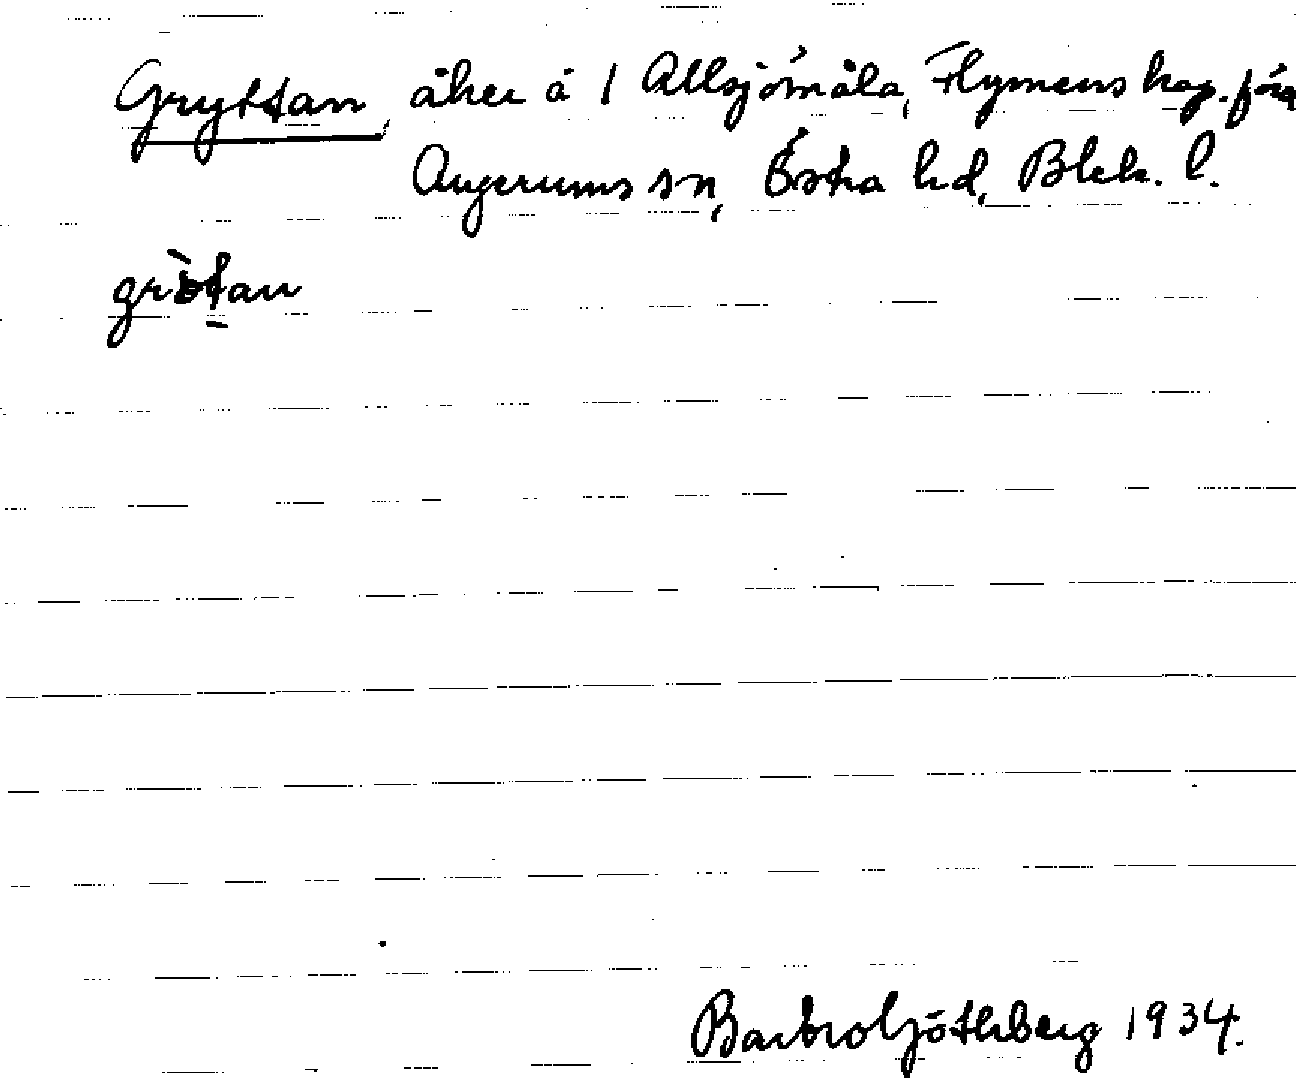 Gryttan, åker å 1 Allsjömåla, Flymens kap. förs
Augerums sn, Östra hd, Blek. l.
gròtan
Barbro Göthberg 1934.